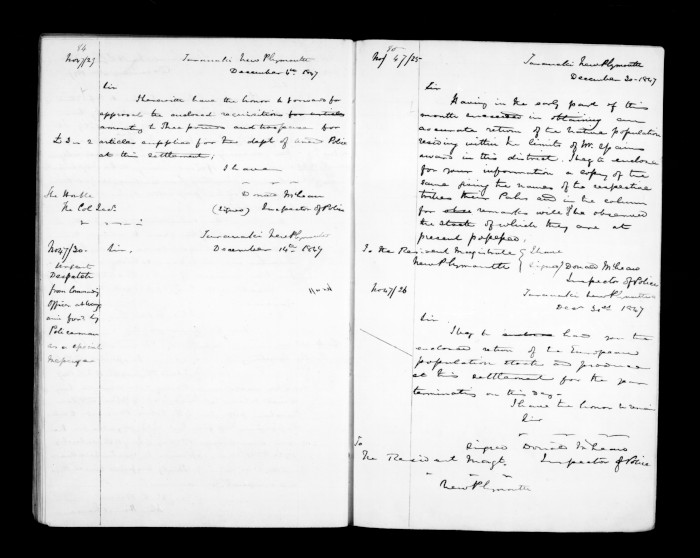 84
No 47/29
Taranaki New Plymouth
December 6th 1847
Sir
I herewith have the honor to forward for
approval the enclosed requisitions for articles
amounting to Three pounds and twopence for
£3 - 2
articles supplied for the dept of Police
at this settlement,
I have
Donald McLean
(signed) Inspector of Police
The Honble
The Col Secy.
Taranaki New Plymouth
No 47/30.
Sir.
December 14th 1847
Urgent
Despatch
from Commanding
Officer
Policeman
as a special
messenger
85
No 47/25
Taranaki New Plymouth
December 20. 1847
Sir
Having in the early part of this
month succeeded in obtaining an
accurate return of the native population
residing within the limits of Mr. Spains
award in this district. I beg to enclose
for your information a copy of the
same giving the names of the respective
tribes their Pahs and in the column
for remarks will be observed
the stock of which they are at
present possessed.
To the Resident Magistrate
I have
New Plymouth
(signed) Donald McLean
Inspector of Police
No 47/26
Taranaki New Plymouth
Decr 31st 1847
Sir
I beg to hand you the
enclosed return of the European
population stock and produce
at this settlement for the year
terminating on this day.
I have the honor to remain
Sir
signed Donald McLean
To
The Resident Magt.
Inspector of Police
New Plymouth